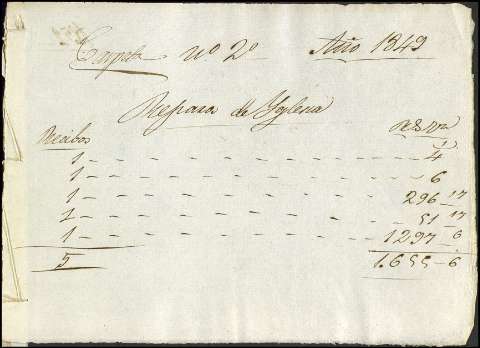 Carpta nº 2º Año 1849
Repara de Yglesia
Recibos Rs Vn
1 - - - - - - - - - 4
1 - - - - - - - - - 6
1 - - - - - - - - - 296 17
1 - - - - - - - - - 51 17
1 - - - - - - - - - 1297 6
5 1.655 - 6